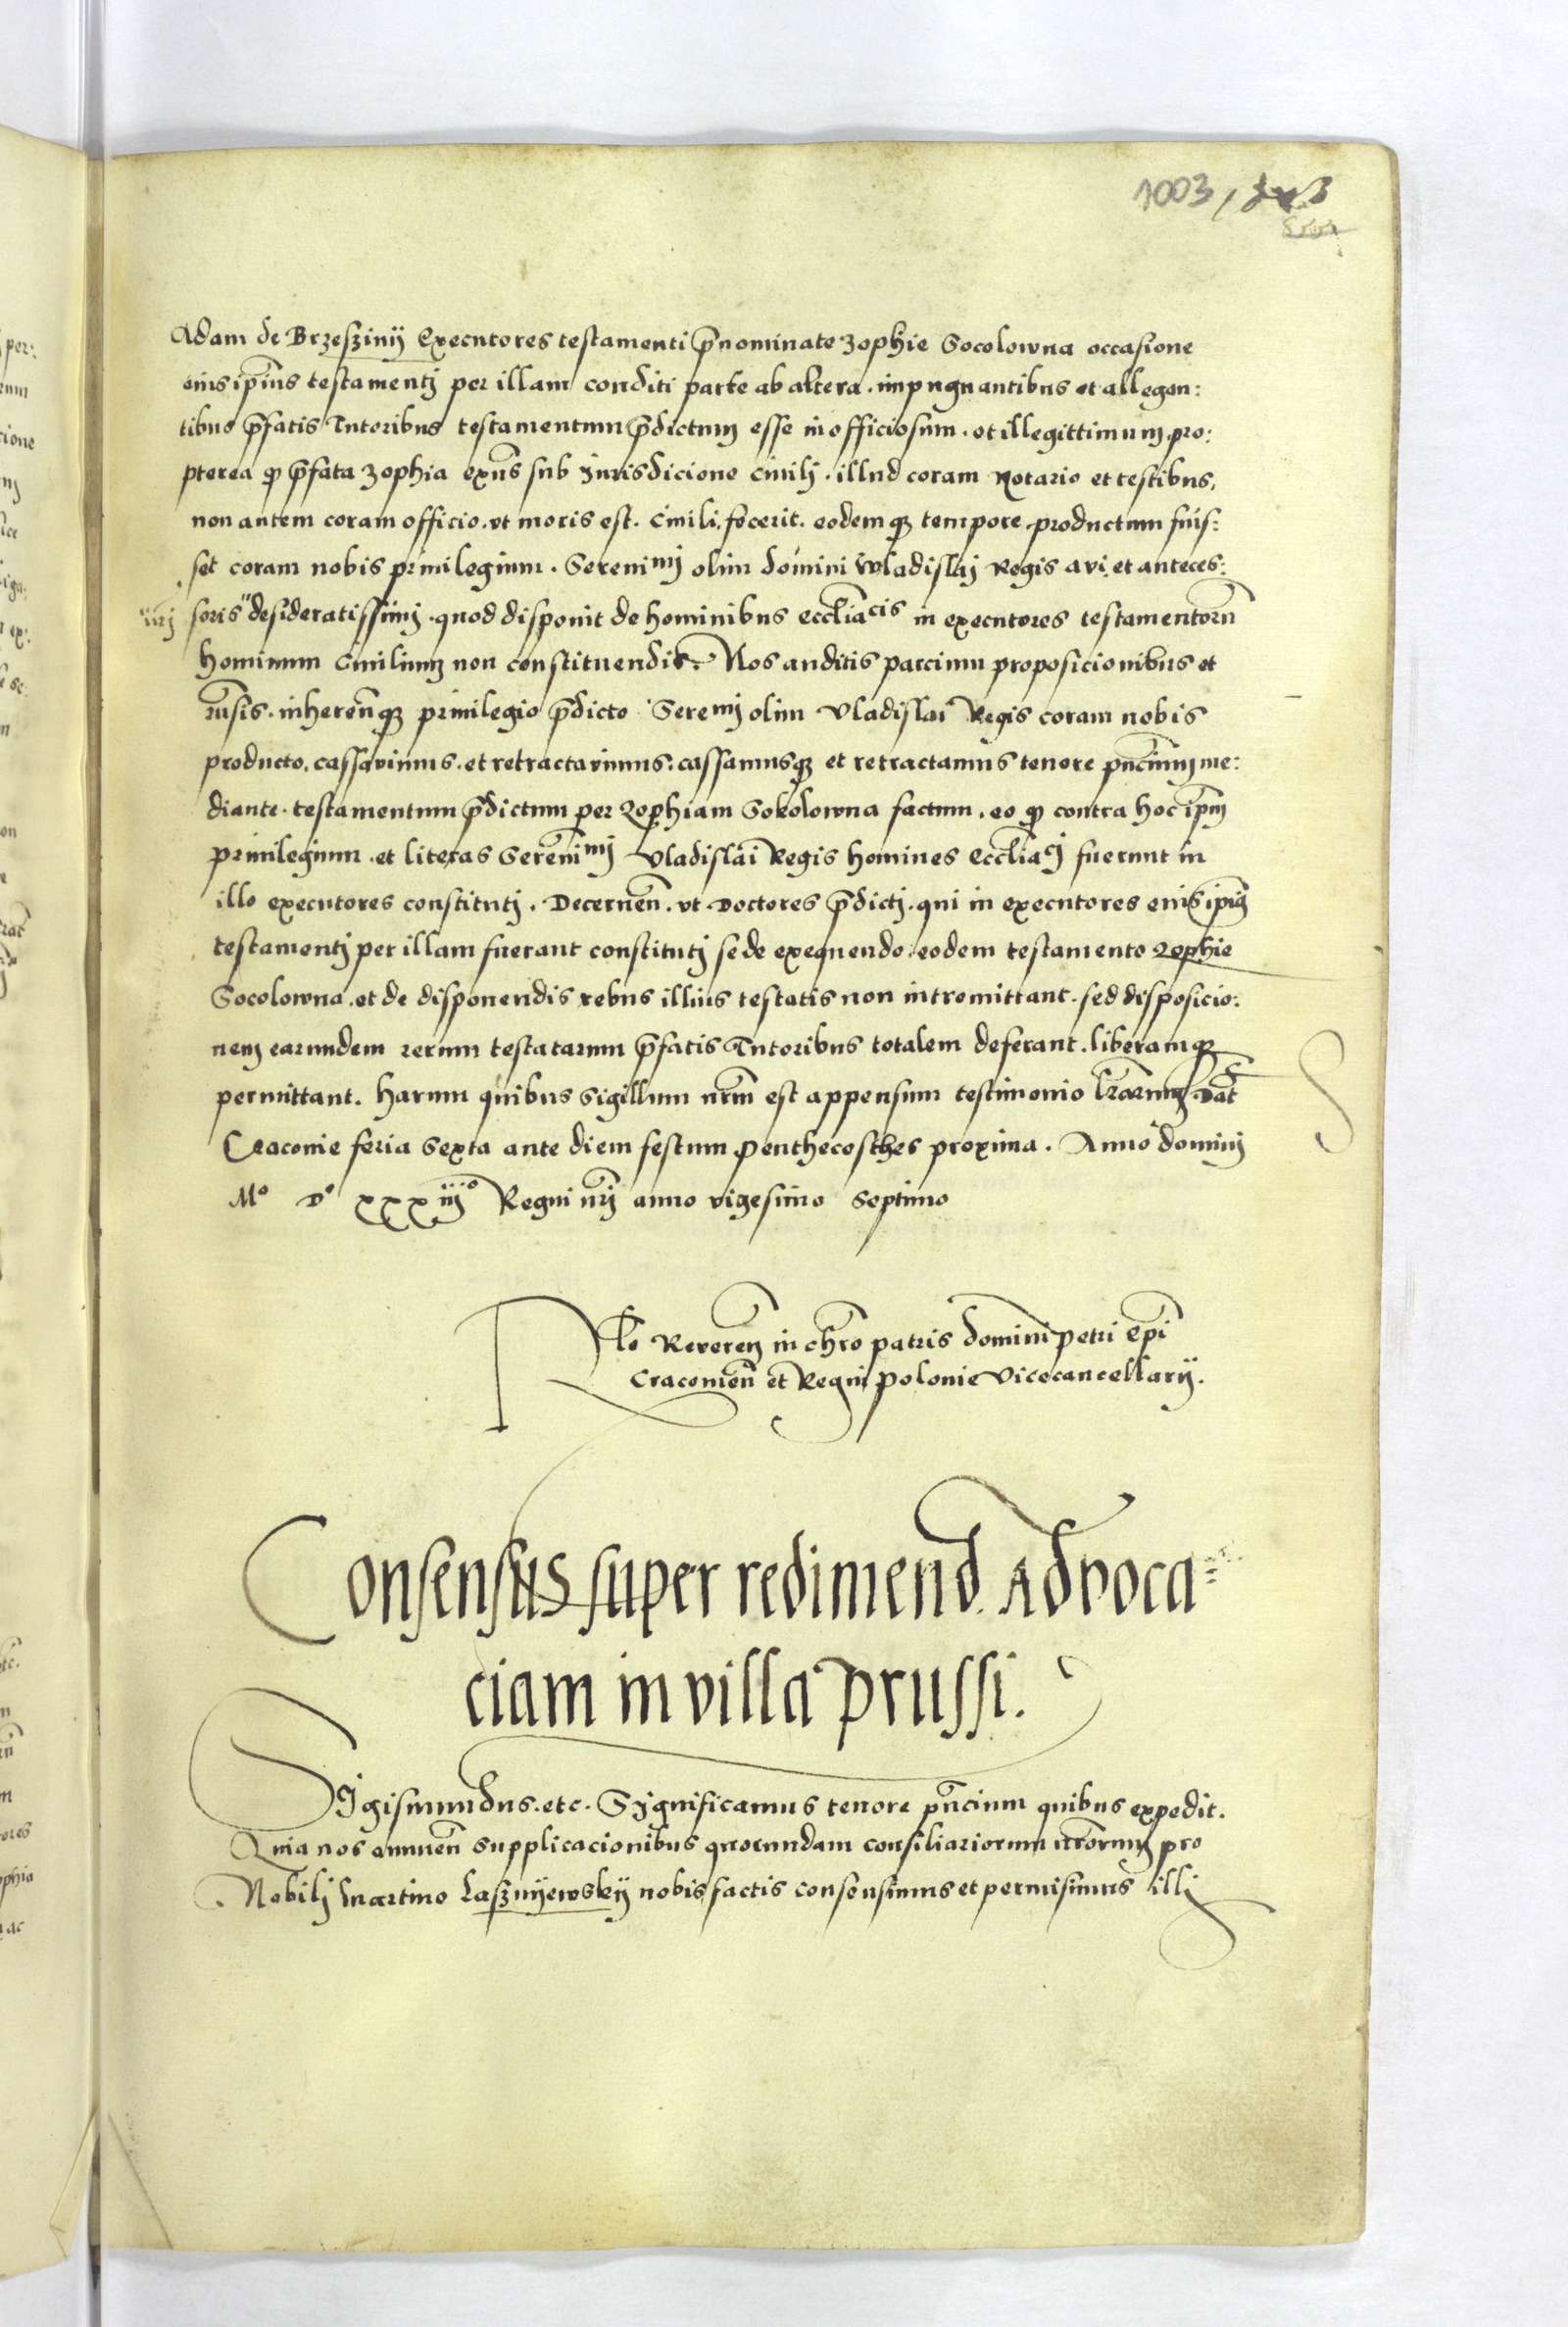 1003,
Adam de Brzesziny Executores testamenti p̄nominate Zophie Socolowna occasione
eius ip̄ius testamentj per illam conditi parte ab altera. impugnantibus et allegan:
tibus p̄fatis Tutoribus testamentum p̄dictum esse inofficiosum. et illegittimum pro:
pterea qz p̄fata Zophia exn̄s sub Jurisdicione Ciuilj. illud coram Notario et testibus,
non autem coram officio. vt moris est. Ciuili, fecerit. eodemqz tempore productum fuis:
set coram nobis priuilegium. Serenimj olim domini Wladislaj Regis avi et anteces:
nrj soris desideratissimj. quod disponit de hominibus eccl̄iacis in executores testamentorū
hominum Ciuilium non constituendis. Nos auditis parcium proposicionibus et
rn̄sis. inheren̄qz priuilegio p̄dicto Seremj olim Vladislai Regis coram nobis
producto. cassavimus. et retractavimus. cassamusqz et retractamus tenore pn̄cium me:
diante. testamentum p̄dictum per Zophiam Sokolowna factum. eo qz contra hoc ip̄m
priuilegium. et literas Serenimj Vladislai Regis homines Eccl̄iacj fuerunt in
illo executores constitutj. Decernen̄. vt Doctores p̄dictj. qui in executores eius ip̄ius
testamentj per illam fuerant constitutj se de exequendo eodem testamento Zophie
Socolowna. et de disponendis rebus illius testatis non intromittant. sed disposicio:
nem earundem rerum testatarum p̄fatis Tutoribus totalem deferant. liberamqz
permittant. Harum quibus Sigillum nr̄m est appensum testimonio lr̄arum Dat̄
Cracovie feria Sexta ante diem festum Penthecosthes proxima. Anno dominj
Mo Do xxxiijo Regni nr̄j anno vigesimo Septimo
Rl̄o Reveren in chr̄o patris domini Petri Ep̄i
Cracovien̄ et Regni Polonie Vicecancellarij.
Consensus super redimend. Advoca=
ciam in villa Prussi.
SIgismundus. etc. Significamus tenore pn̄cium quibus expedit.
Quia nos annuen̄ supplicacionibus quorundam consiliariorum nr̄orum pro
Nobilj Martino Lasznyewskij nobis factis consensimus et permisimus illj